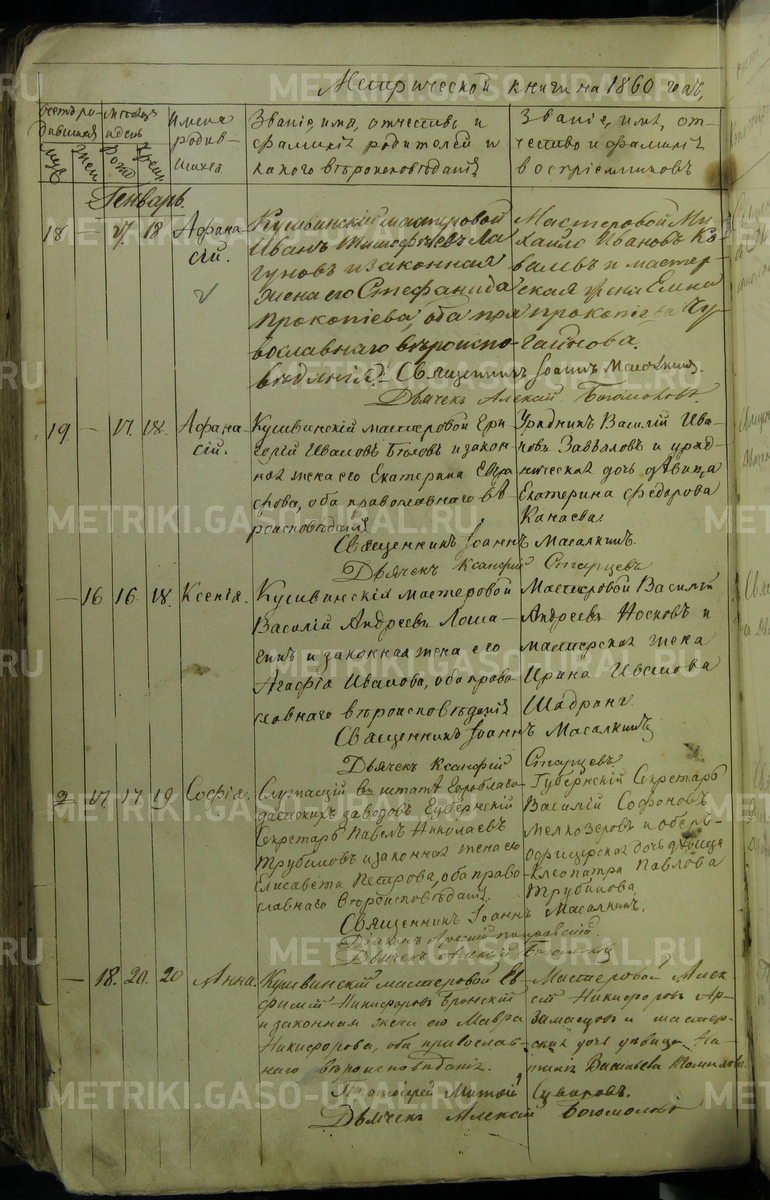 Метрической книги на 1860 годъ,
Счетъ родившихся
муж. жен.
Месяцъ и день
рожд. крещ.
Имена родившихся
Званіе, имя, отчество и фамилія родителей и какого вѣроисповѣданія
Званіе, имя, отчество и фамилія воспріемниковъ
Генварь.
18 — 17. 18 Афанасій.
Кушвинскій мастеровой
Иванъ Тимофѣевъ Лагуновъ и законная
жена его Стефанида
Прокопіева, оба православнаго вѣроисповѣданія.
Мастеровой Михайло Ивановъ Ковалевъ и мастерская жена Елена
Прокопіева
Священникъ Іоаннъ Масалкинъ.
Дьячекъ Алексій Богомоловъ
19. — 17. 18. Афанасій.
Кушвинскій мастеровой Григорій Ивановъ
и законная жена его Екатерина
оба православнаго вѣроисповѣданія
Урядникъ Василій Ивановъ Завьяловъ и урядническая дочь дѣвица
Екатерина Федорова
Канаева.
Священникъ Іоаннъ Масалкинъ.
Дьячекъ Ксанфій Старцевъ
— 16 16. 18. Ксенія.
Кушвинскій мастеровой
Василій Андреевъ
и законная жена его
Агафія Иванова, оба православнаго вѣроисповѣданія
Мастеровой Василій
Андреевъ Носковъ и
мастерская жена
Ирина Иванова
Шадрина.
Священникъ Іоаннъ Масалкинъ
Дьячекъ Ксанфій Старцевъ
17. 17. 19. Софія.
Служащій въ штатѣ Гороблагодатскихъ заводовъ Губернскій
Секретарь Павелъ Николаевъ
Трубиновъ и законная жена его
Елисавета Петрова, оба православнаго вѣроисповѣданія.
Губернскій Секретарь
Василій Софоновъ
Мелкозеровъ и оберъ-офицерская дочь дѣвица
Клеопатра Павлова
Трубинова
Священникъ Іоаннъ Масалкинъ.
Дьячекъ Алексій Богомоловъ
— 18. 20. 20 Анна.
Кушвинскій мастеровой Ефимій Никифоровъ
и законная жена его Мавра
Никифорова, оба православнаго вѣроисповѣданія.
Мастеровой Алексій Никифоровъ Арзамасцовъ и мастерская дочь дѣвица
Васильева
Протоіерей
Дьячекъ Алексій Богомоловъ
METRIKI.GASO-URAL.RU